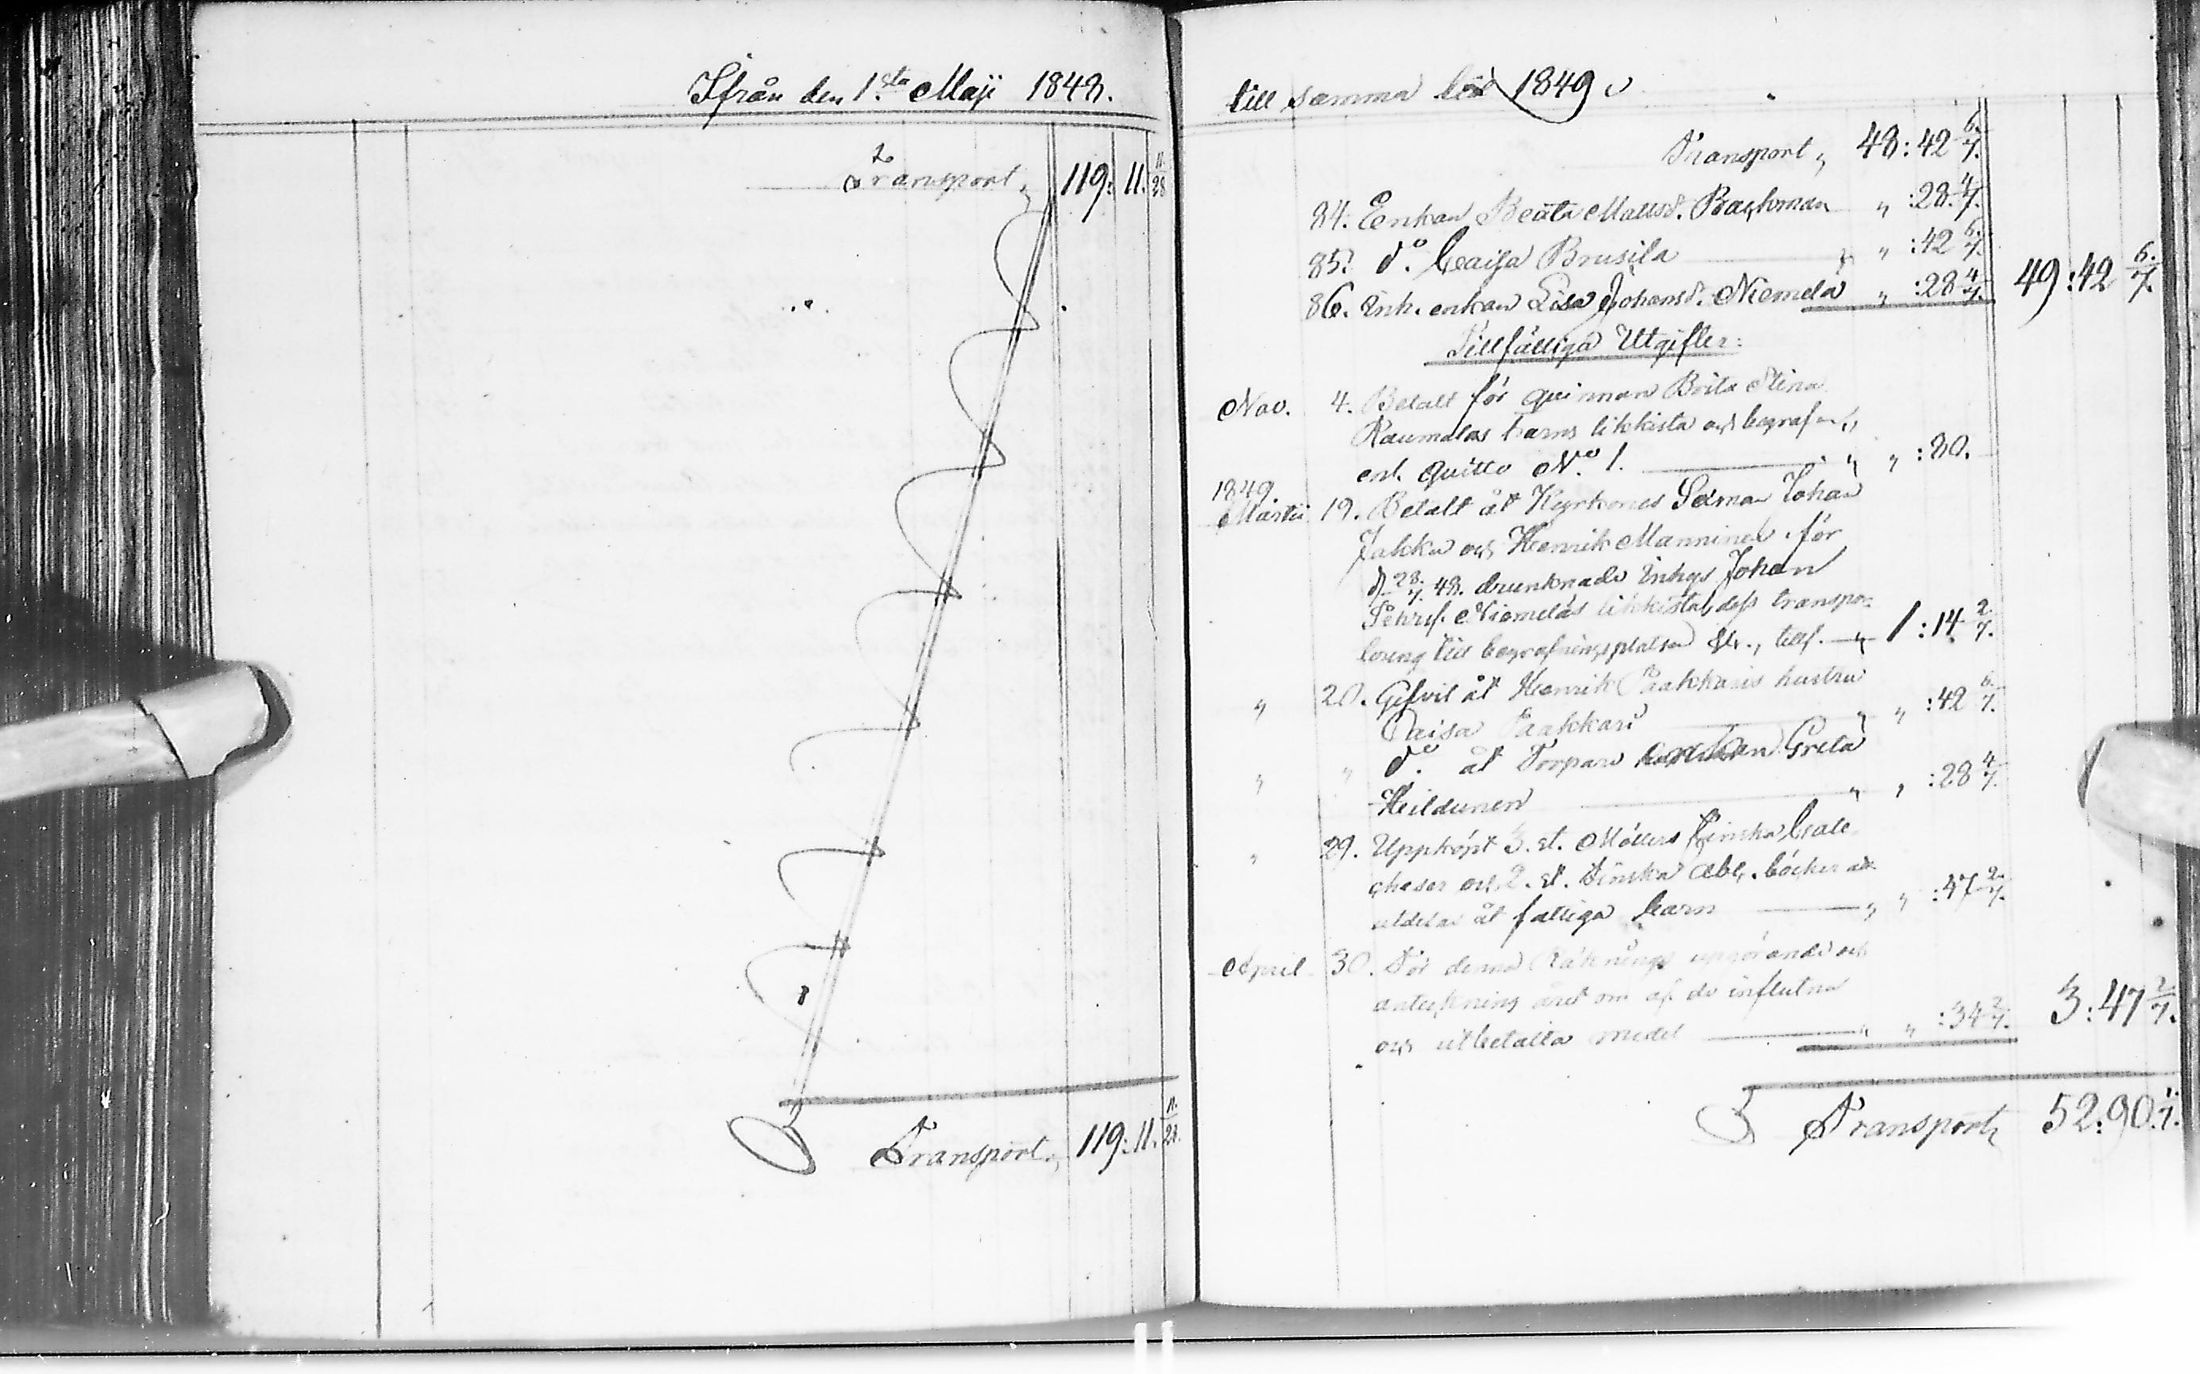 Ifrån den 1.sta Maji 1848.
Transport, 119: 11. 11/28
Transport, 119: 11. 11/28.
till samma tid 1849
Transport, 48: 42 6/7.
84. Enkan Beata Mattsd. Backman " :28. 4/7.
85. do. Caisa Brusila " :42 6/7.
86. Inh. enkan Lisa Johansd. Niemelä " :28 4/7. 49: 42 6/7.
Tillfälliga Utgifter:
Nov. 4. Betalt för quinnan Brita Stina
Raumalas barns likkista och begrafn.,
enl. quitto No. 1. " " :80.
1849.
Martii 19. Betalt åt Kyrkones Sexman Johan
Jakku och Henrik Manninen, för
d. 28/7. 48. drunknade Inhys Johan
Petriss. Niemeläs likkista, dess transpor-
tering till begrafningsplatsen &c., tills. " 1: 14 2/7.
" 20. Gifvit åt Henrik Paakkaris hustru
Caisa Paakkari " " :42 6/7.
" " do. åt Torpare Greta
Heildunen " " :28 4/7.
" 29. Uppköpt 3. st. Möllers Finska Cate-
cheser och 2. st. Finska Abc. böcker att
utdelas åt fattiga barn " " :47 2/7.
April 30. För denna Räknings uppgörande och
anteckning året om af de influtna
och utbetalta medel " " :34 2/7. 3: 47 2/7.
Transport, 52: 90. 1/7.